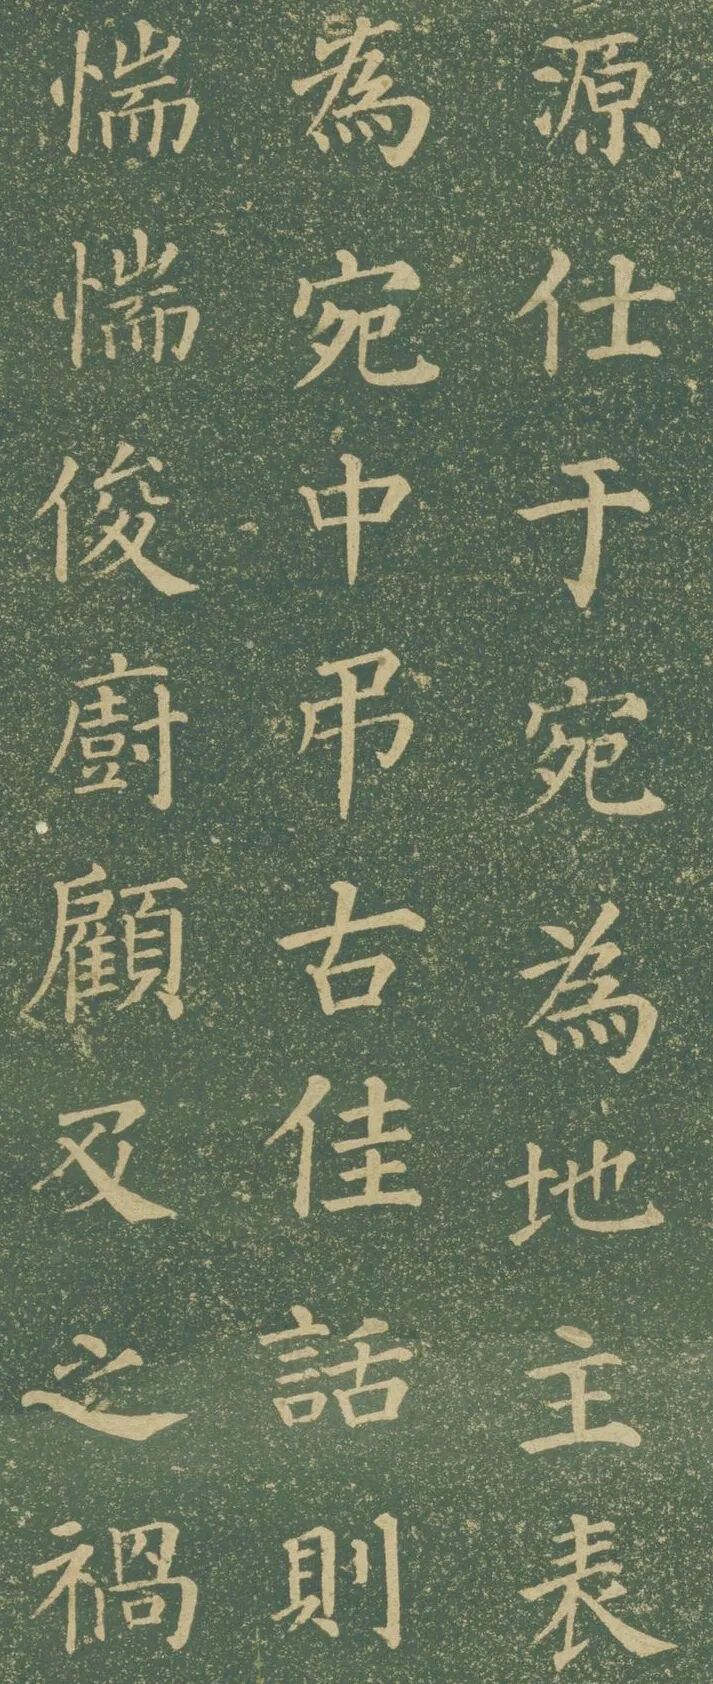 源仕于宛為地主表
為宛中弔古佳話則
惴惴俊廚顧及之禍